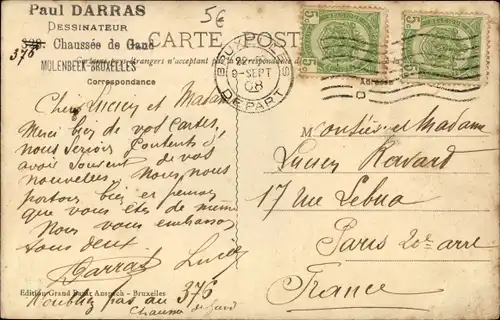 Paul DARRAS
DESSINATEUR
376 Chaussée de Gand
MOLENBEEK-BRUXELLES
5€
CARTE POSTALE
Correspondance
Adresse
BRUXELLES
9-SEPT
08
DEPART
Cher Lucien et Madame
Merci bien de vos cartes,
nous serions contents d'
avoir souvent de vos
nouvelles. Nous, nous
portons bien et pensons
que vous êtes de même
Nous vous embrassons
tous deux.
Darras Lucie
Edition Grand Bazar Anspach - Bruxelles
N'oubliez pas au 376
Chaussée de Gand
Monsieur et Madame
Lucien Ravard
17 rue Lebua
Paris 20e arre
France